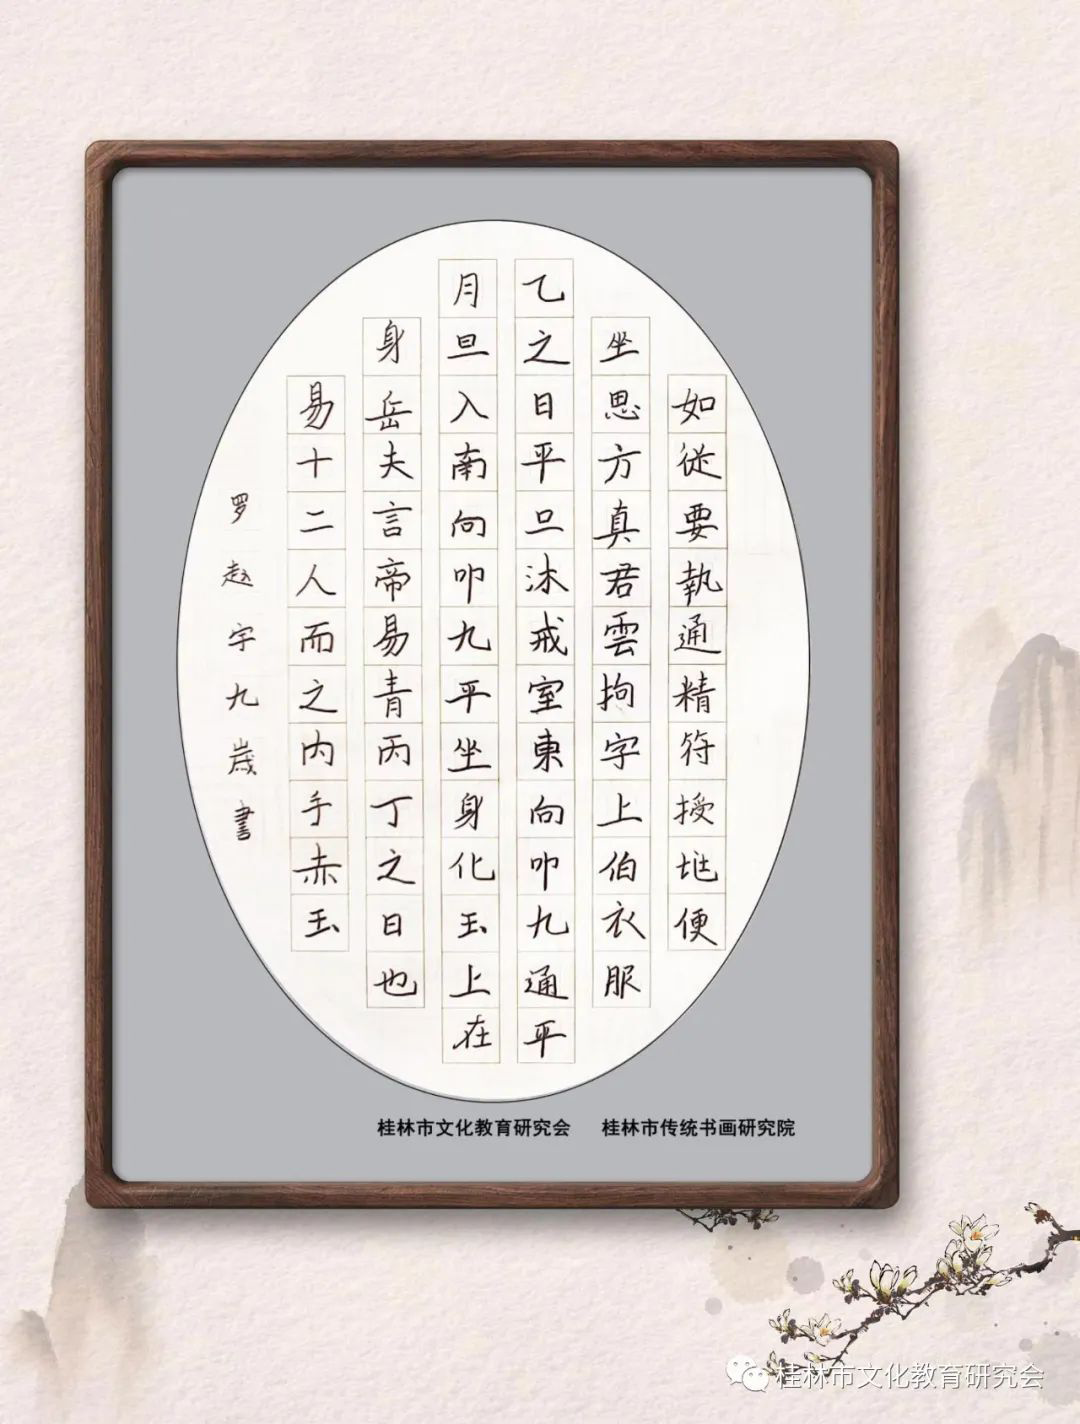 如従要執通精符授地便
坐思方真君雲拘字上伯衣服
乙之日平旦沐戒室東向叩九通平
月旦入南向叩九平坐身化玉上在
身岳夫言帝易青丙丁之日也
易十二人而之内手赤玉
罗赵宇九歲書
桂林市文化教育研究会 桂林市传统书画研究院
桂林市文化教育研究会